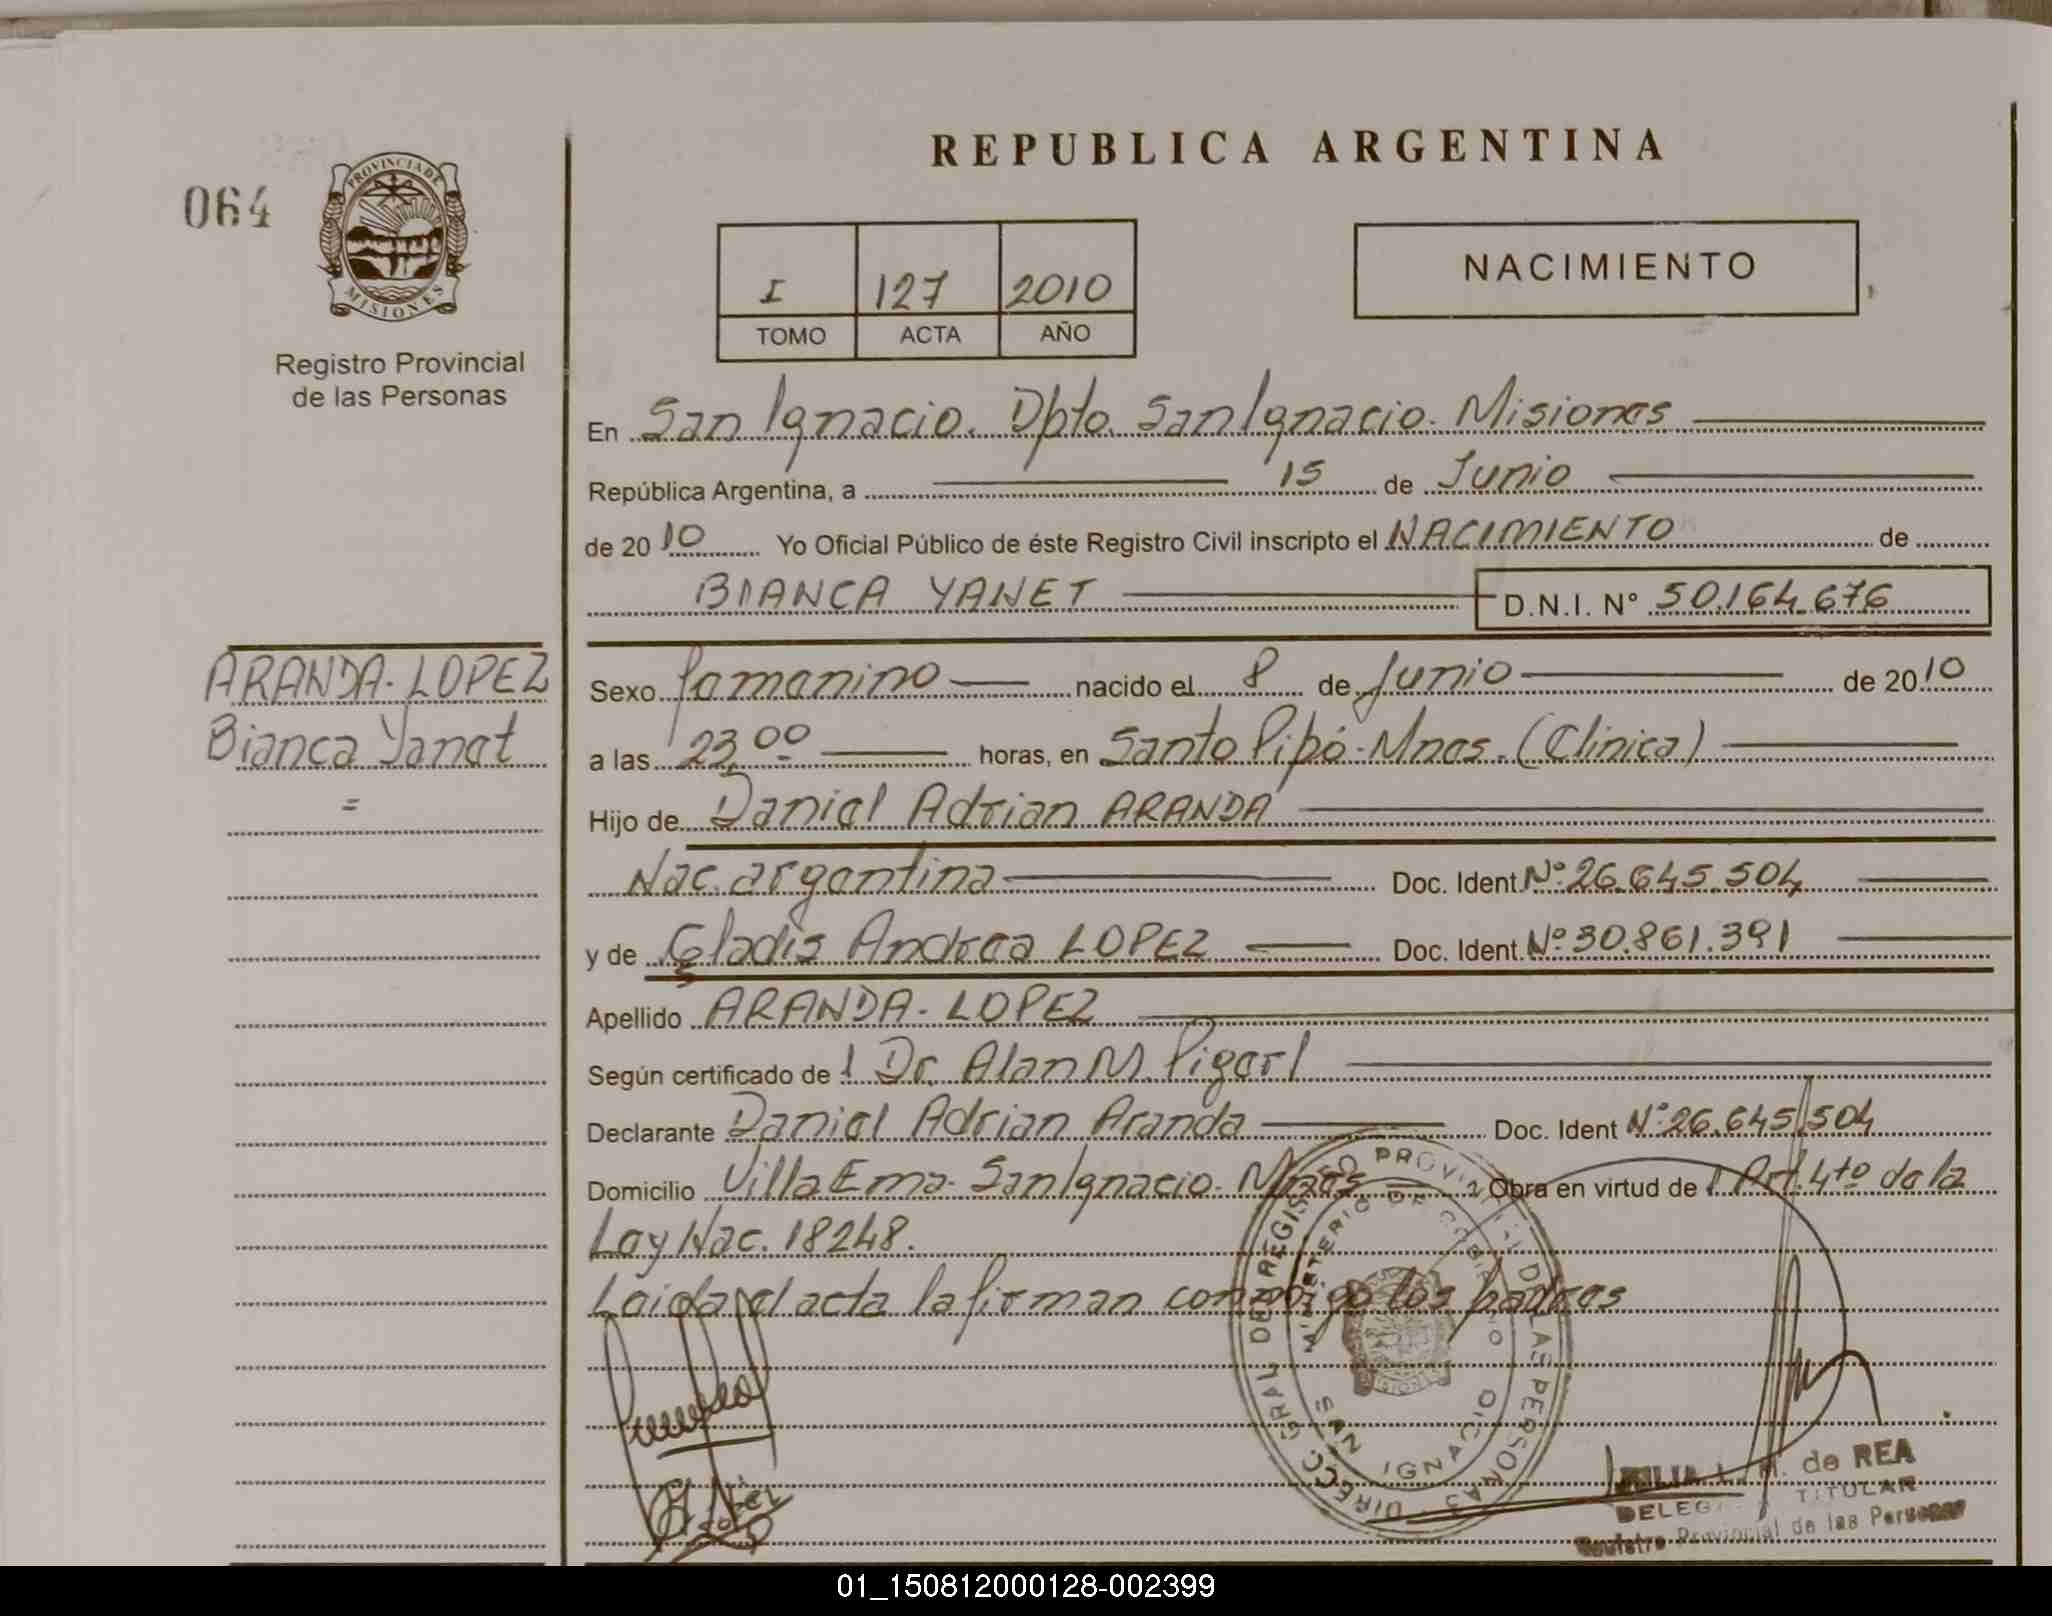 REPUBLICA ARGENTINA
064
PROVINCIA DE
MISIONES
Registro Provincial
de las Personas
I 127 2010
TOMO ACTA AÑO
NACIMIENTO
En San Ignacio. Dpto. San Ignacio. Misiones
República Argentina, a 15 de Junio
de 2010 Yo Oficial Público de éste Registro Civil inscripto el NACIMIENTO de
BIANCA YANET D.N.I. N° 50.164.676
ARANDA-LOPEZ
Bianca Yanet
=
Sexo femenino nacido el 8 de Junio de 2010
a las 23,00 horas, en Santo Pipó-Mnes. (Clinica)
Hijo de Daniel Adrian ARANDA
Nac. argentina Doc. Ident. N° 26.645.504
y de Gladis Andrea LOPEZ Doc. Ident. N° 30.861.391
Apellido ARANDA-LOPEZ
Según certificado de l Dr. Alan M.
Declarante Daniel Adrian Aranda Doc. Ident N° 26.645.504
Domicilio Villa Ema- San Ignacio- Mnes Obra en virtud de l Art. 4to de la
Ley Nac. 18248.
Leida el acta la firman conmigo los padres
DIRECC. GRAL. DEL REGISTRO PROVINCIAL DE LAS PERSONAS
MINISTERIO DE GOBIERNO
SAN IGNACIO
MISIONES
de REA
TITULAR
Registro Provincial de las Personas
01_150812000128-002399